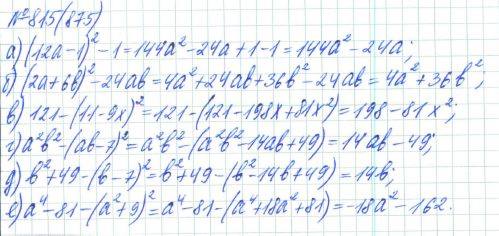 № 815(875)
а) (12a-1)² - 1 = 144a² - 24a + 1 - 1 = 144a² - 24a;
б) (2a+6b)² - 24ab = 4a² + 24ab + 36b² - 24ab = 4a² + 36b²;
в) 121 - (11-9x)² = 121 - (121 - 198x + 81x²) = 198 - 81x²;
г) a²b² - (ab-7)² = a²b² - (a²b² - 14ab + 49) = 14ab - 49;
д) b² + 49 - (b-7)² = b² + 49 - (b² - 14b + 49) = 14b;
е) a⁴ - 81 - (a² + 9)² = a⁴ - 81 - (a⁴ + 18a² + 81) = -18a² - 162.